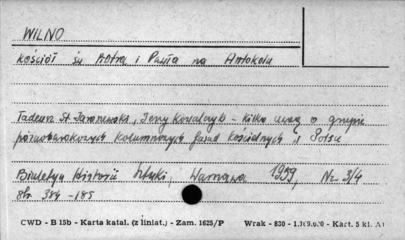 WILNO
kościół św Piotra i Pawła na Antokolu
Tadeusz St. Jaroszewski, Jerzy Kowalczyk - kilka uwag o grupie
późnobarokowych kolumnowych fasad kościelnych w Polsce
Biuletyn Historii Sztuki, Warszawa 1959, Nr. 3/4
str 384 - 185
CWD - B 15b - Karta katal. (z liniat.) - Zam. 1625/P Wrak - 830 - Kart. 5 kl.